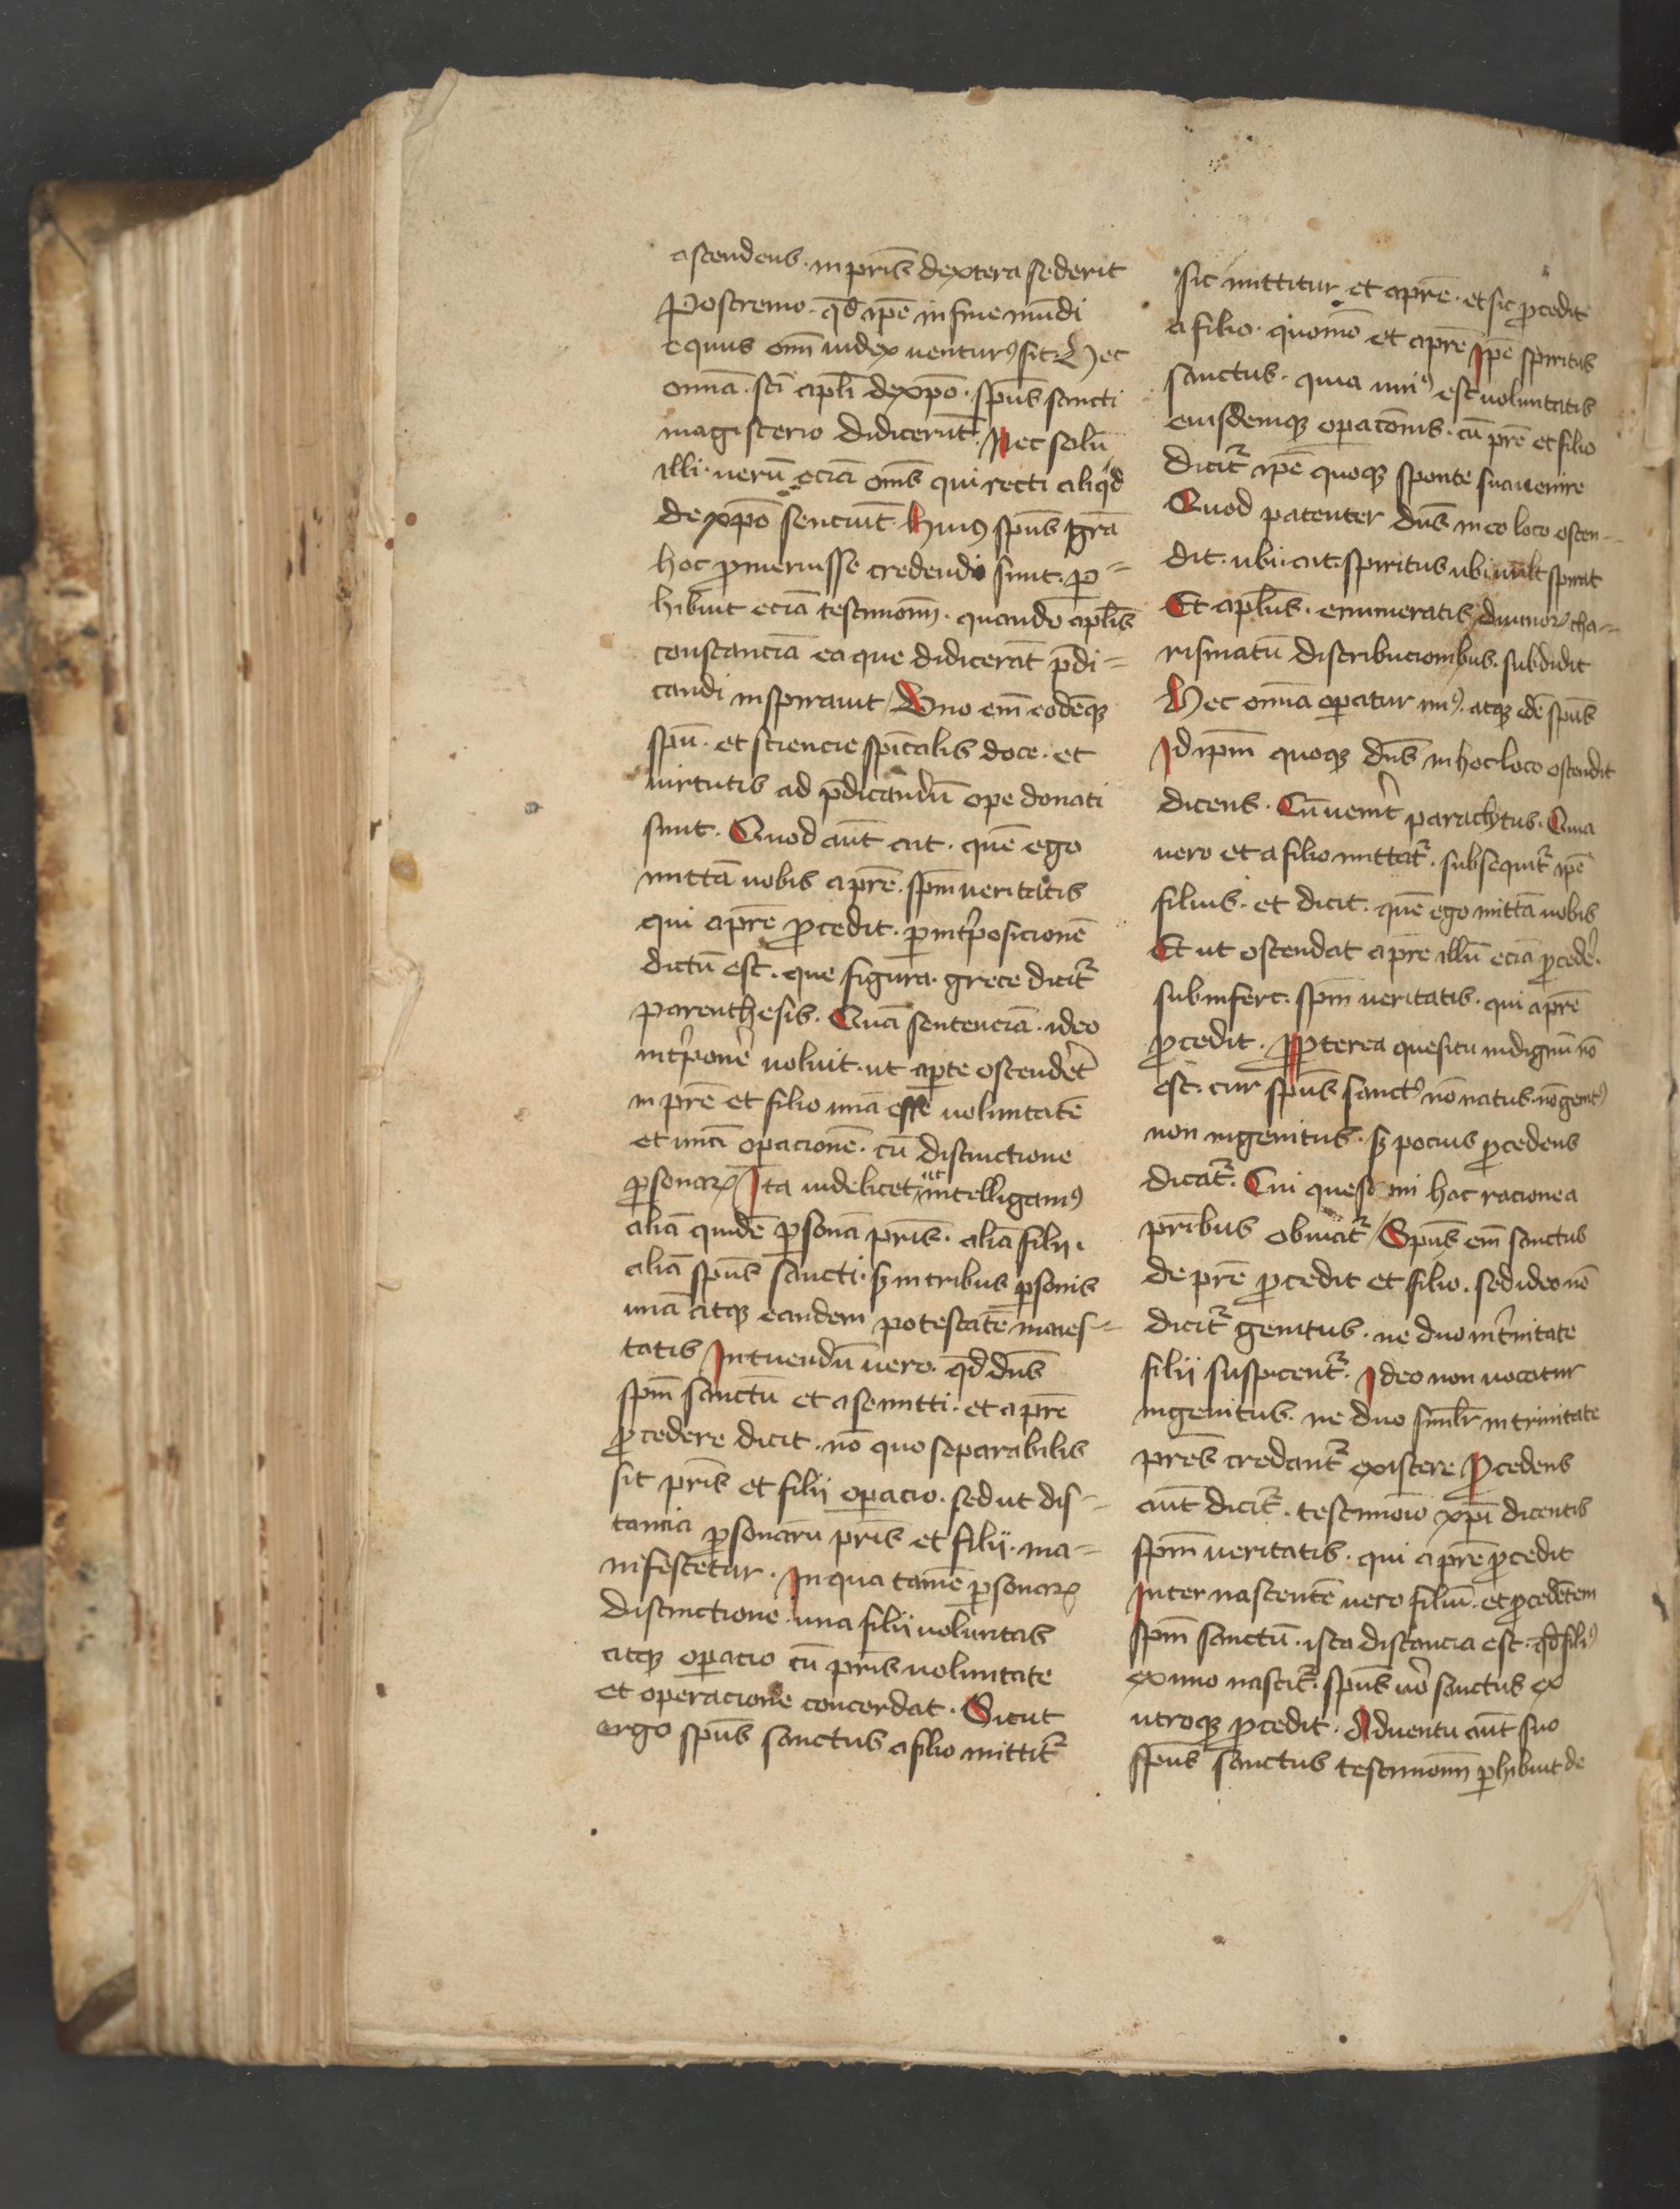 ascendens · in pr̄is dextera sederit
Postremo · qd̄ ip̄e in fine mūdi
equus om̄i iudex uenturꝰ sit · Hec
om̄ia · sc̄i apl̄i de xp̄o · sp̄us sancti
magisterio didicerūt · Nec solū
illi · uerū eciā om̄s qui recti aliq̇d
de xp̄o senciūt · Huiꝰ sp̄us gr̄a
hoc ꝓmeruisse credendi sunt · ꝑ=
hibuit eciā testimoniū · quando apl̄is
constanciā ea que didicerāt p̄di=
candi inspirauit / Uno em̄ eodēqꝫ
sp̄u · et sciencie sp̄italis doce · et
uirtutis ad p̄dicandū ope donati
sunt · Quod aūt ait · quē ego
mittā uobis a pr̄e · sp̄m ueritatis
qui a pr̄e ꝓcedit · ꝑ int̓posicionē
dictū est · que figura · grece dicit᷑
parenthesis · Quā sentenciā · ideo
int̓ponē uoluit · ut aꝑte ostendēt
in pr̄e et filio unā esse uoluntatē
et unā oꝑacionē · cū distinctione
ꝑsonaꝝ / Ita uidelicet ut intelligamꝰ
aliā quidē ꝑsonā pr̄is · aliā filii ·
aliā sp̄us sancti · sꝫ in tribus ꝑsonis
unā atqꝫ eandem potestatē maies=
tatis Intuendū uero · qd̄ dn̄s
sp̄m sanctū et a se mitti · et a pr̄e
ꝓcedere dicit · nō quo separabilis
sit pr̄is et filii oꝑacio · sed ut dis=
tancia ꝑsonarū pr̄is et filii · ma=
nifestetur · In qua tamē ꝑsonaꝝ
distinctione · una filii uoluntas
atqꝫ oꝑacio cū pr̄is uoluntate
et operacione concordat · Sicut
ergo sp̄us sanctus a filio mittit᷑
sic mittitur et a pr̄e · et sic ꝓcedit
a filio · quomō et a pr̄e Ip̄e spiritus
sanctus · quia uniꝰ est uoluntatis
eiusdemqꝫ oꝑacōnis · cū pr̄e et filio
dicit᷑ ip̄e quoqꝫ sponte sua uenire
Quod patenter dn̄s in eo loco osten=
dit · ubi ait · spiritus ubi uult spirat
Et apl̄us · enumeratis diuinoꝝ cha=
rismatū distribucionibus · subdidit
Hec om̄ia oꝑatur unꝰ · atqꝫ idē sp̄us
Id ip̄m quoqꝫ dn̄s in hoc loco ostendit
dicens · Cū uen̄it paraclytus · Quia
uero et a filio mittat᷑ · subsequit᷑ ip̄e
filius · et dicit · quē ego mittā uobis
Et ut ostendat a pr̄e illū eciā ꝓcedē ·
subinfert · sp̄m ueritatis · qui a pr̄e
ꝓcedit · Propterea quesitu indignū nō
est · cur sp̄us sanctꝰ nō natus · nō genitꝰ
non ingenitus · sꝫ pocius ꝓcedens
dicat᷑ · Cui questioni hac racione a
pr̄ibus obuiat᷑ / Sp̄us em̄ sanctus
de pr̄e ꝓcedit et filio · sed ideo nō
dicit᷑ genitus · ne duo in t̓nitate
filii suspicent᷑ · Ideo non uocatur
ingenitus · ne duo simil̄r in trinitate
pr̄es credant᷑ existere Ꝓcedens
aūt dicit᷑ · testimonio xp̄i dicentis
sp̄m ueritatis · qui a pr̄e ꝓcedit
Inter nascentē uero filiū · et ꝓcedētem
sp̄m sanctū · ista distancia est · qd̄ filiꝰ
ex uno nascit᷑ · sp̄us uō sanctus ex
utroqꝫ ꝓcedit · Aduentu aūt suo
sp̄us sanctus testimoniū ꝑhibuit de